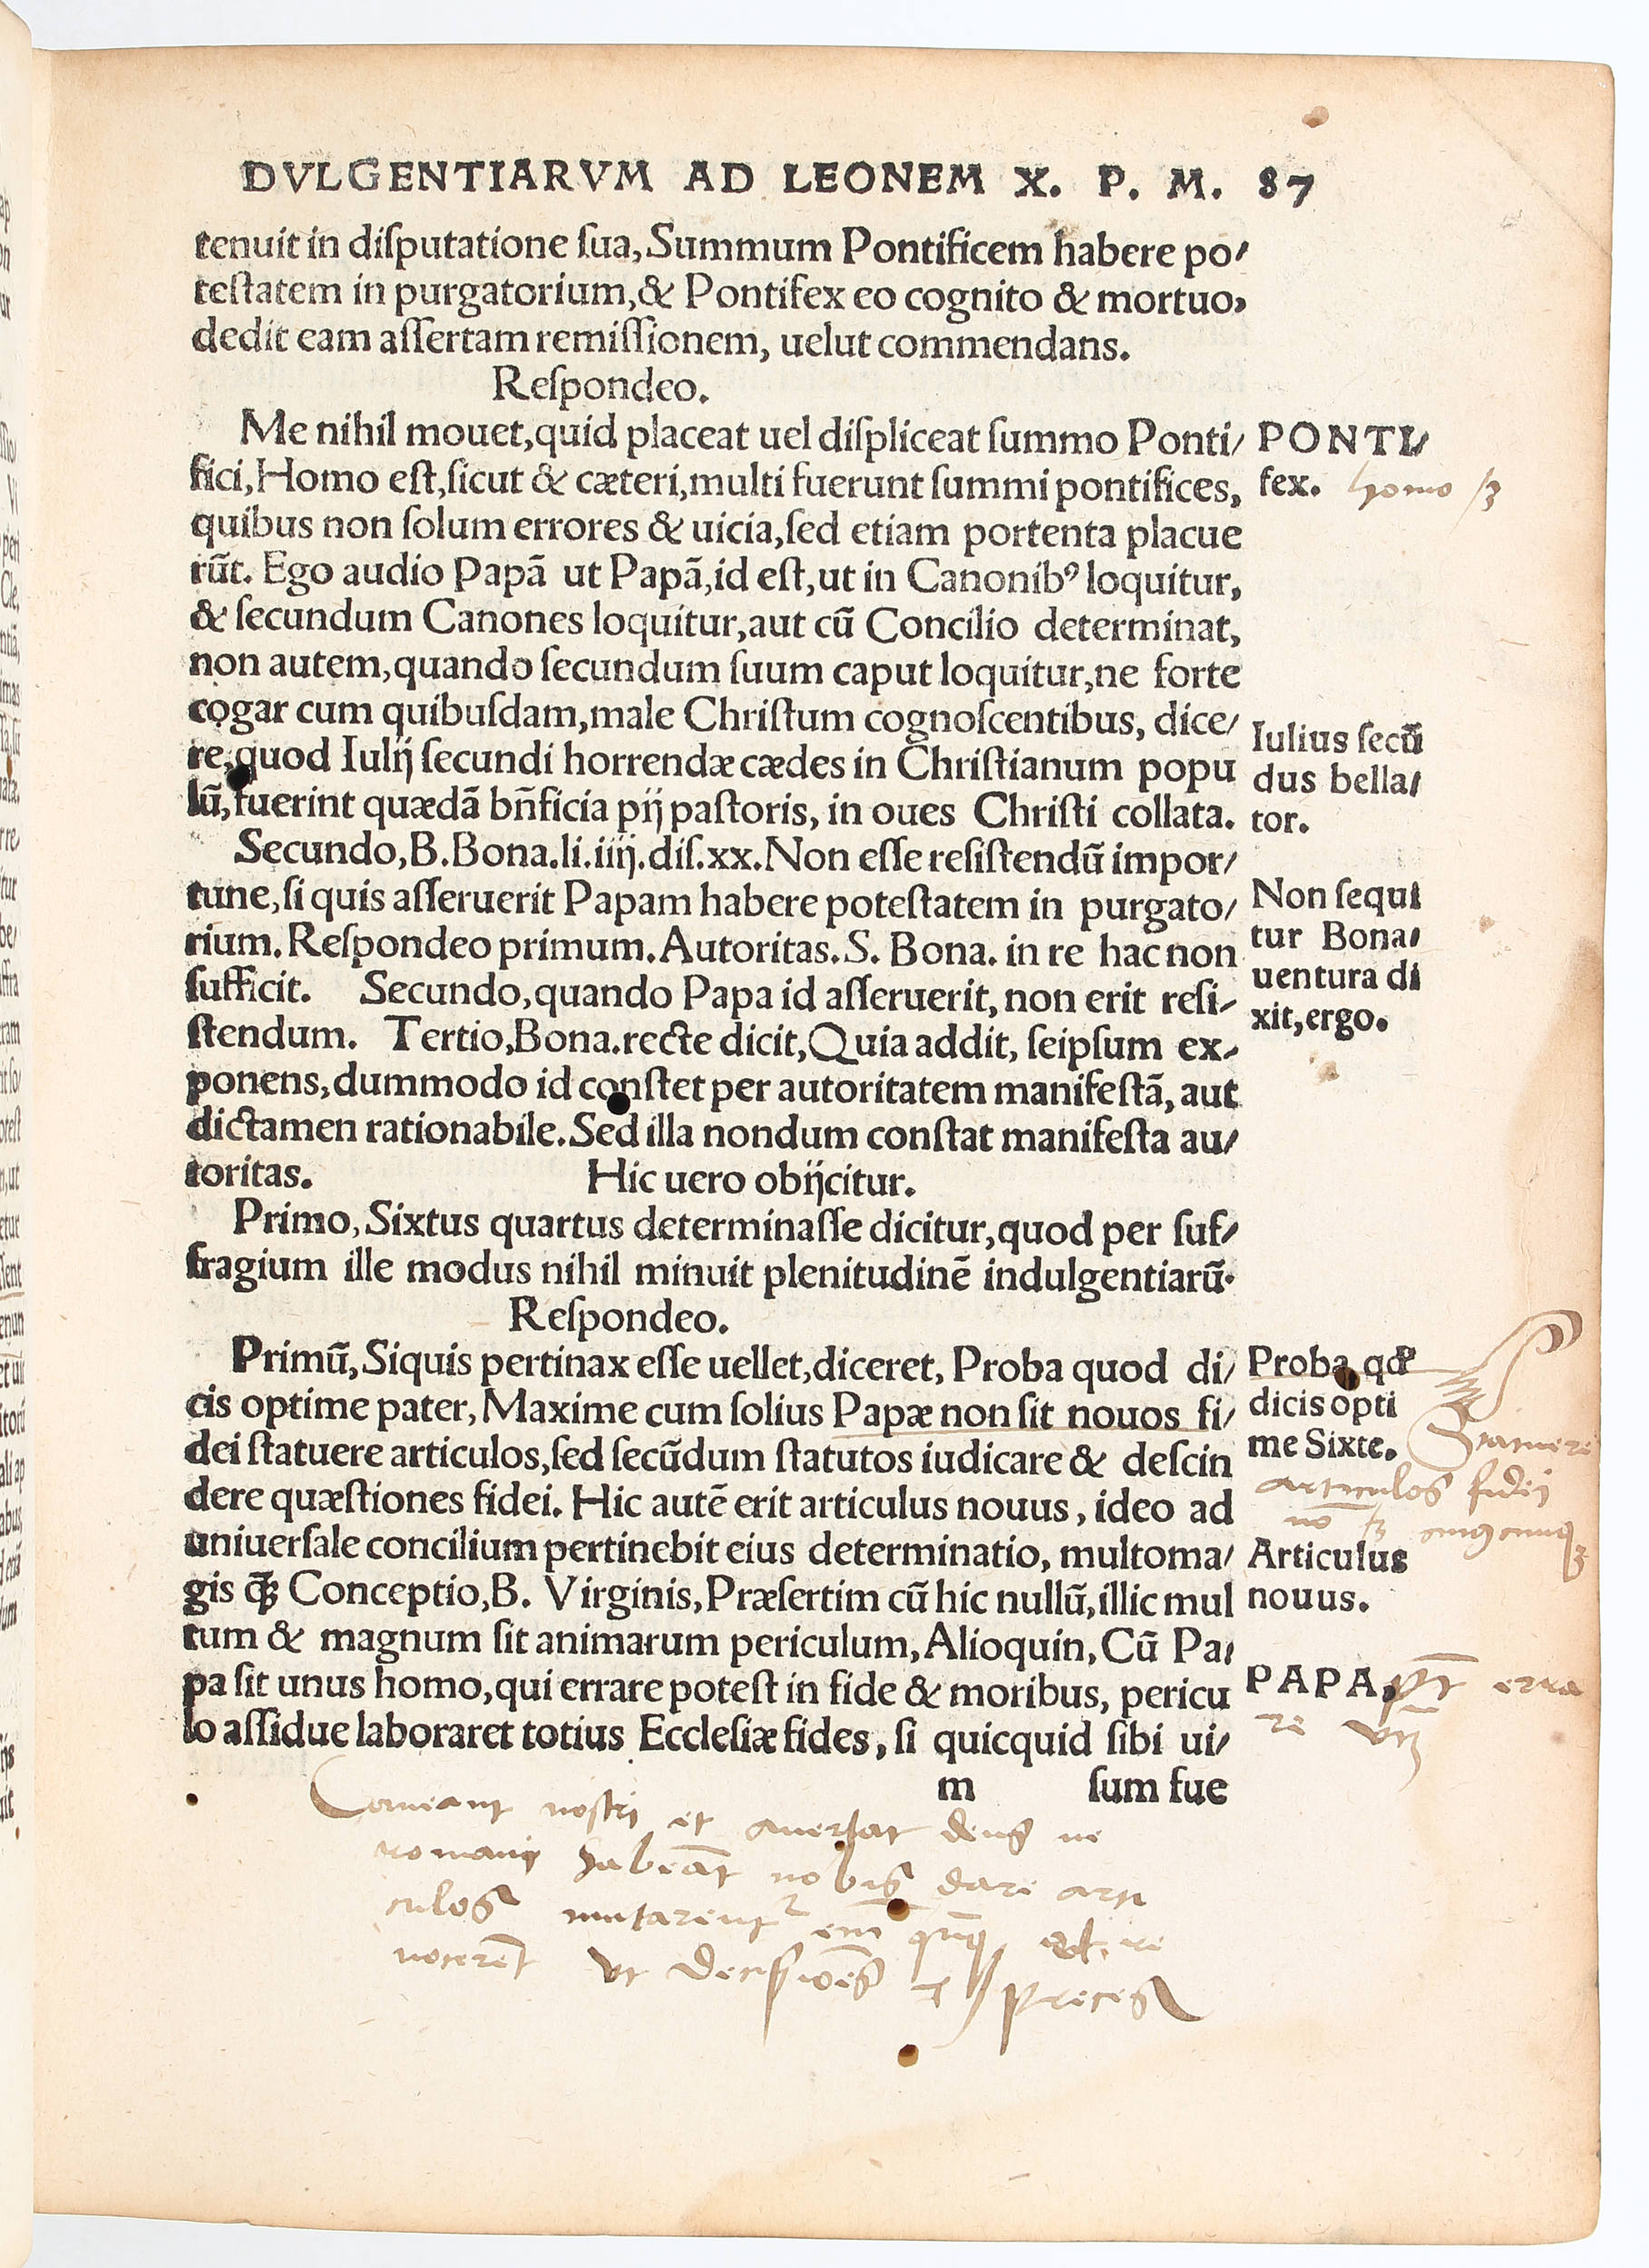 DVLGENTIARVM AD LEONEM X. P. M. 87
tenuit in diſputatione ſua, Summum Pontificem habere po/
teſtatem in purgatorium, & Pontifex eo cognito & mortuo,
dedit eam aſſertam remiſſionem, uelut commendans.
Reſpondeo.
Me nihil mouet, quid placeat uel diſpliceat ſummo Ponti/
fici, Homo eſt, ſicut & cæteri, multi fuerunt ſummi pontifices,
quibus non ſolum errores & uicia, ſed etiam portenta placue
rũt. Ego audio Papã ut Papã, id eſt, ut in Canonibꝰ loquitur,
& ſecundum Canones loquitur, aut cũ Concilio determinat,
non autem, quando ſecundum ſuum caput loquitur, ne forte
cogar cum quibuſdam, male Chriſtum cognoſcentibus, dice/
re, quod Iulij ſecundi horrendæ cædes in Chriſtianum popu
lũ, fuerint quædã bñficia pij paſtoris, in oues Chriſti collata.
Secundo, B. Bona. li. iiij. diſ. xx. Non eſſe reſiſtendũ impor/
tune, ſi quis aſſeruerit Papam habere poteſtatem in purgato/
rium. Reſpondeo primum. Autoritas. S. Bona. in re hac non
ſufficit. Secundo, quando Papa id aſſeruerit, non erit reſi/
ſtendum. Tertio, Bona. recte dicit, Quia addit, ſeipſum ex/
ponens, dummodo id conſtet per autoritatem manifeſtã, aut
dictamen rationabile. Sed illa nondum conſtat manifeſta au/
toritas. Hic uero obijcitur.
Primo, Sixtus quartus determinaſſe dicitur, quod per ſuf/
fragium ille modus nihil minuit plenitudinẽ indulgentiarũ.
Reſpondeo.
Primũ, Siquis pertinax eſſe uellet, diceret, Proba quod di/
cis optime pater, Maxime cum ſolius Papæ non ſit nouos fi/
dei ſtatuere articulos, ſed ſecũdum ſtatutos iudicare & deſcin
dere quæſtiones fidei. Hic autẽ erit articulus nouus, ideo ad
uniuerſale concilium pertinebit eius determinatio, multoma/
gis ꝗ̃ꝫ Conceptio, B. Virginis, Præſertim cũ hic nullũ, illic mul
tum & magnum ſit animarum periculum, Alioquin, Cũ Pa/
pa ſit unus homo, qui errare poteſt in fide & moribus, pericu
lo aſſidue laboraret totius Eccleſiæ fides, ſi quicquid ſibi ui/
m ſum fue
PONTI/
fex. homo
Iulius ſecũ
dus bella/
tor.
Non ſequi
tur Bona/
uentura di
xit, ergo.
Proba qđ
dicis opti
me Sixte.
Statuere
articulos fidei
nõ
Articulus
nouus.
PAPA. erra
re
Caueant nostri et auertat deus ne
habeãt nobis dare arti
culos
nocerẽt ut preces